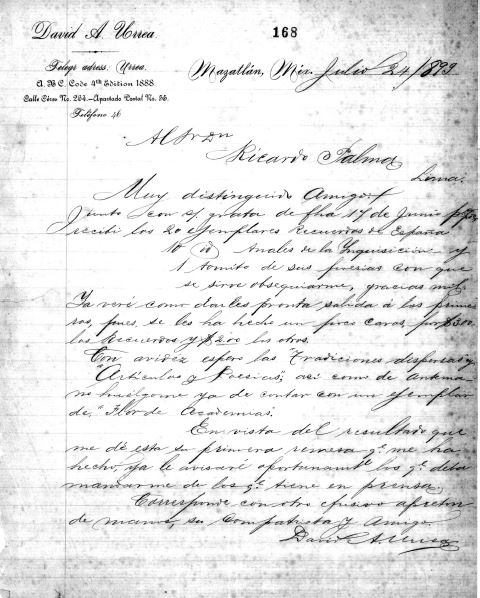 David A. Urrea.
168
Telegr. adress. Urrea.
A.B.C. Code 4th Edition 1888.
Calle Céres No. 264.—Apartado Postal No. 56.
Teléfono 46
Mazatlán, Mex. Julio 24/899
Al Sr Dn
Ricardo Palma
Lima.
Muy distinguido Amigo:
Junto con s/ grata de fha 17 de Junio ppdo
recibí los 20 ejemplares Recuerdos de España
10 id Anales de la Inquisición y
1 tomito de sus poesias con que
se sirve obsequiarme, gracias mil.
Ya veré como darles pronta salida á los prime-
ros, pues se les ha hecho un poco caros, por $3.00
los Recuerdos y $2.00 los otros.
Con avidez espero las Tradiciones dispersas y
"Artículos y Poesias", así como de antema-
no huélgome ya de contar con un ejemplar
de "Flor de Academias.
En vista del resultado que
me dé esta su primera remesa q. me ha
hecho, ya le avisaré oportunamte los q. deba
mandarme de los q. tiene en prensa.
Corresponde con otro efusivo apreton
de manos, su Compatriota y Amigo
David A. Urrea